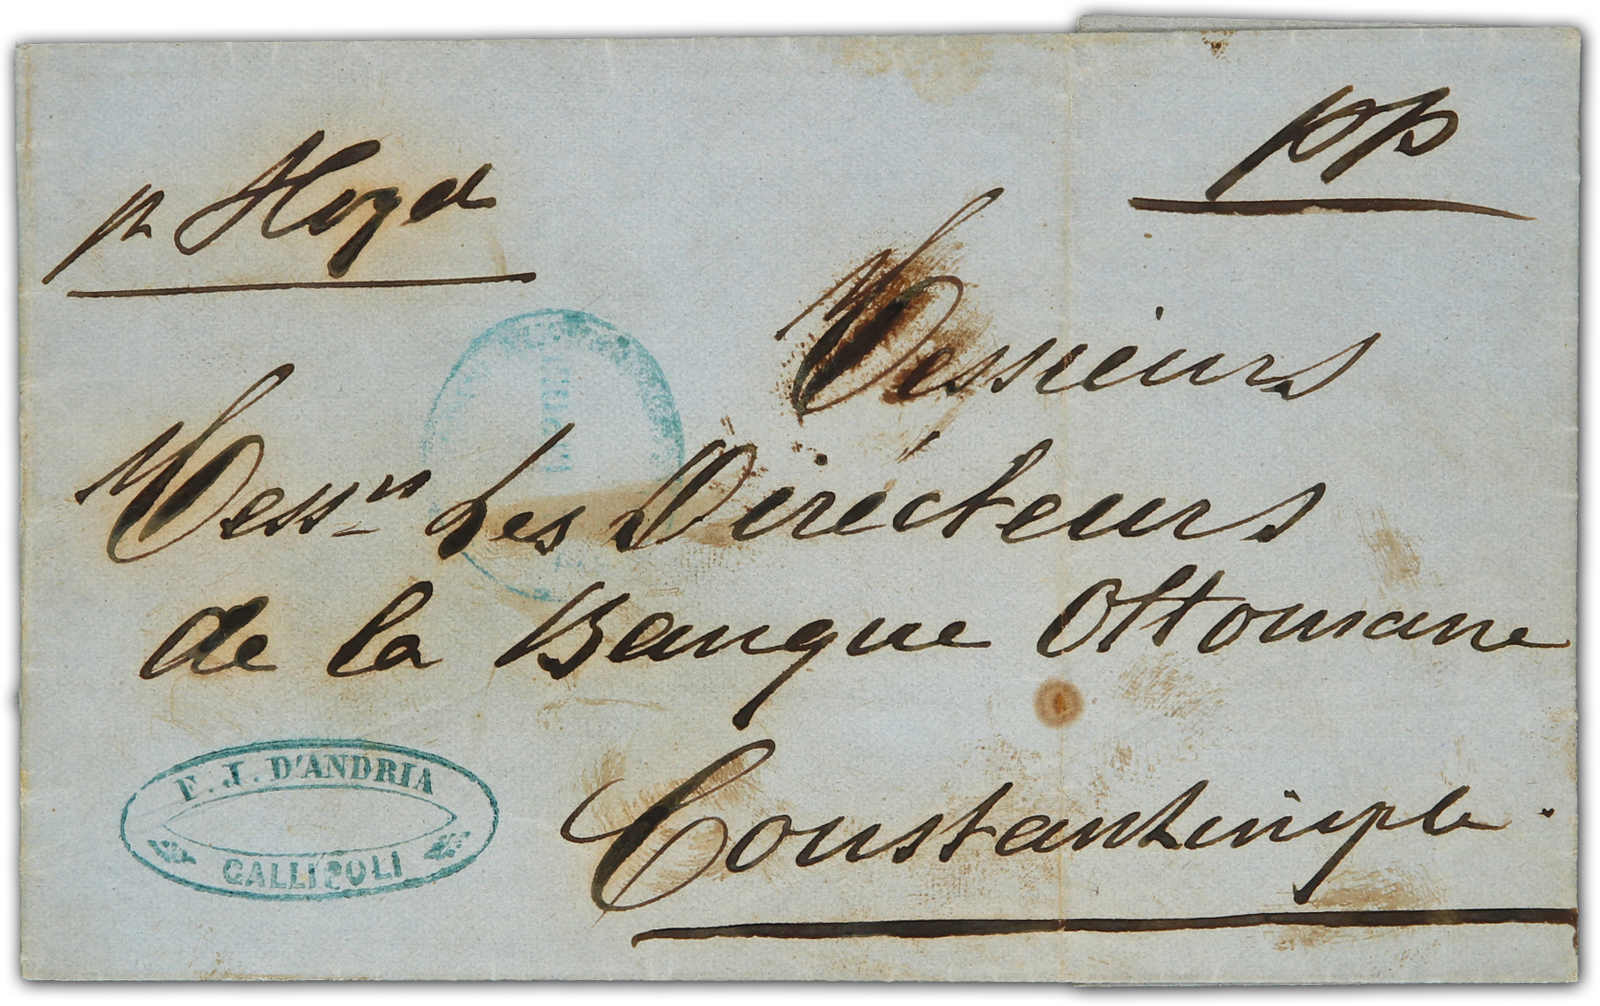 p Lloyd
pp
Messieurs
Mess.rs Les Directeurs
de la Banque Ottomane
Constantinople
F. J. D'ANDRIA
GALLIPOLI